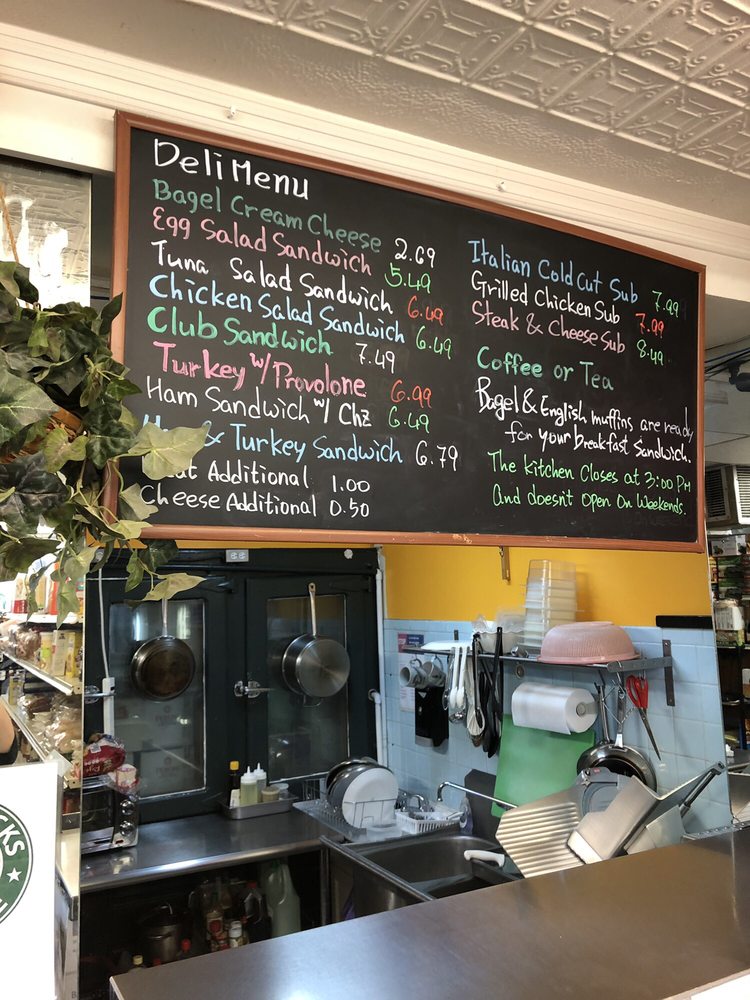 Deli Menu
Bagel Cream Cheese 2.69
Egg Salad Sandwich 5.49
Tuna Salad Sandwich 6.49
Chicken Salad Sandwich 6.49
Club Sandwich 7.49
Turkey w/ Provolone 6.99
Ham Sandwich w/ Chz 6.49
& Turkey Sandwich 6.79
Additional 1.00
Cheese Additional 0.50
Italian Cold Cut Sub 7.99
Grilled Chicken Sub 7.99
Steak & Cheese Sub 8.49
Coffee or Tea
Bagel & English muffins are ready
for your breakfast Sandwich.
The Kitchen Closes at 3:00 PM
and doesn't Open On Weekends.